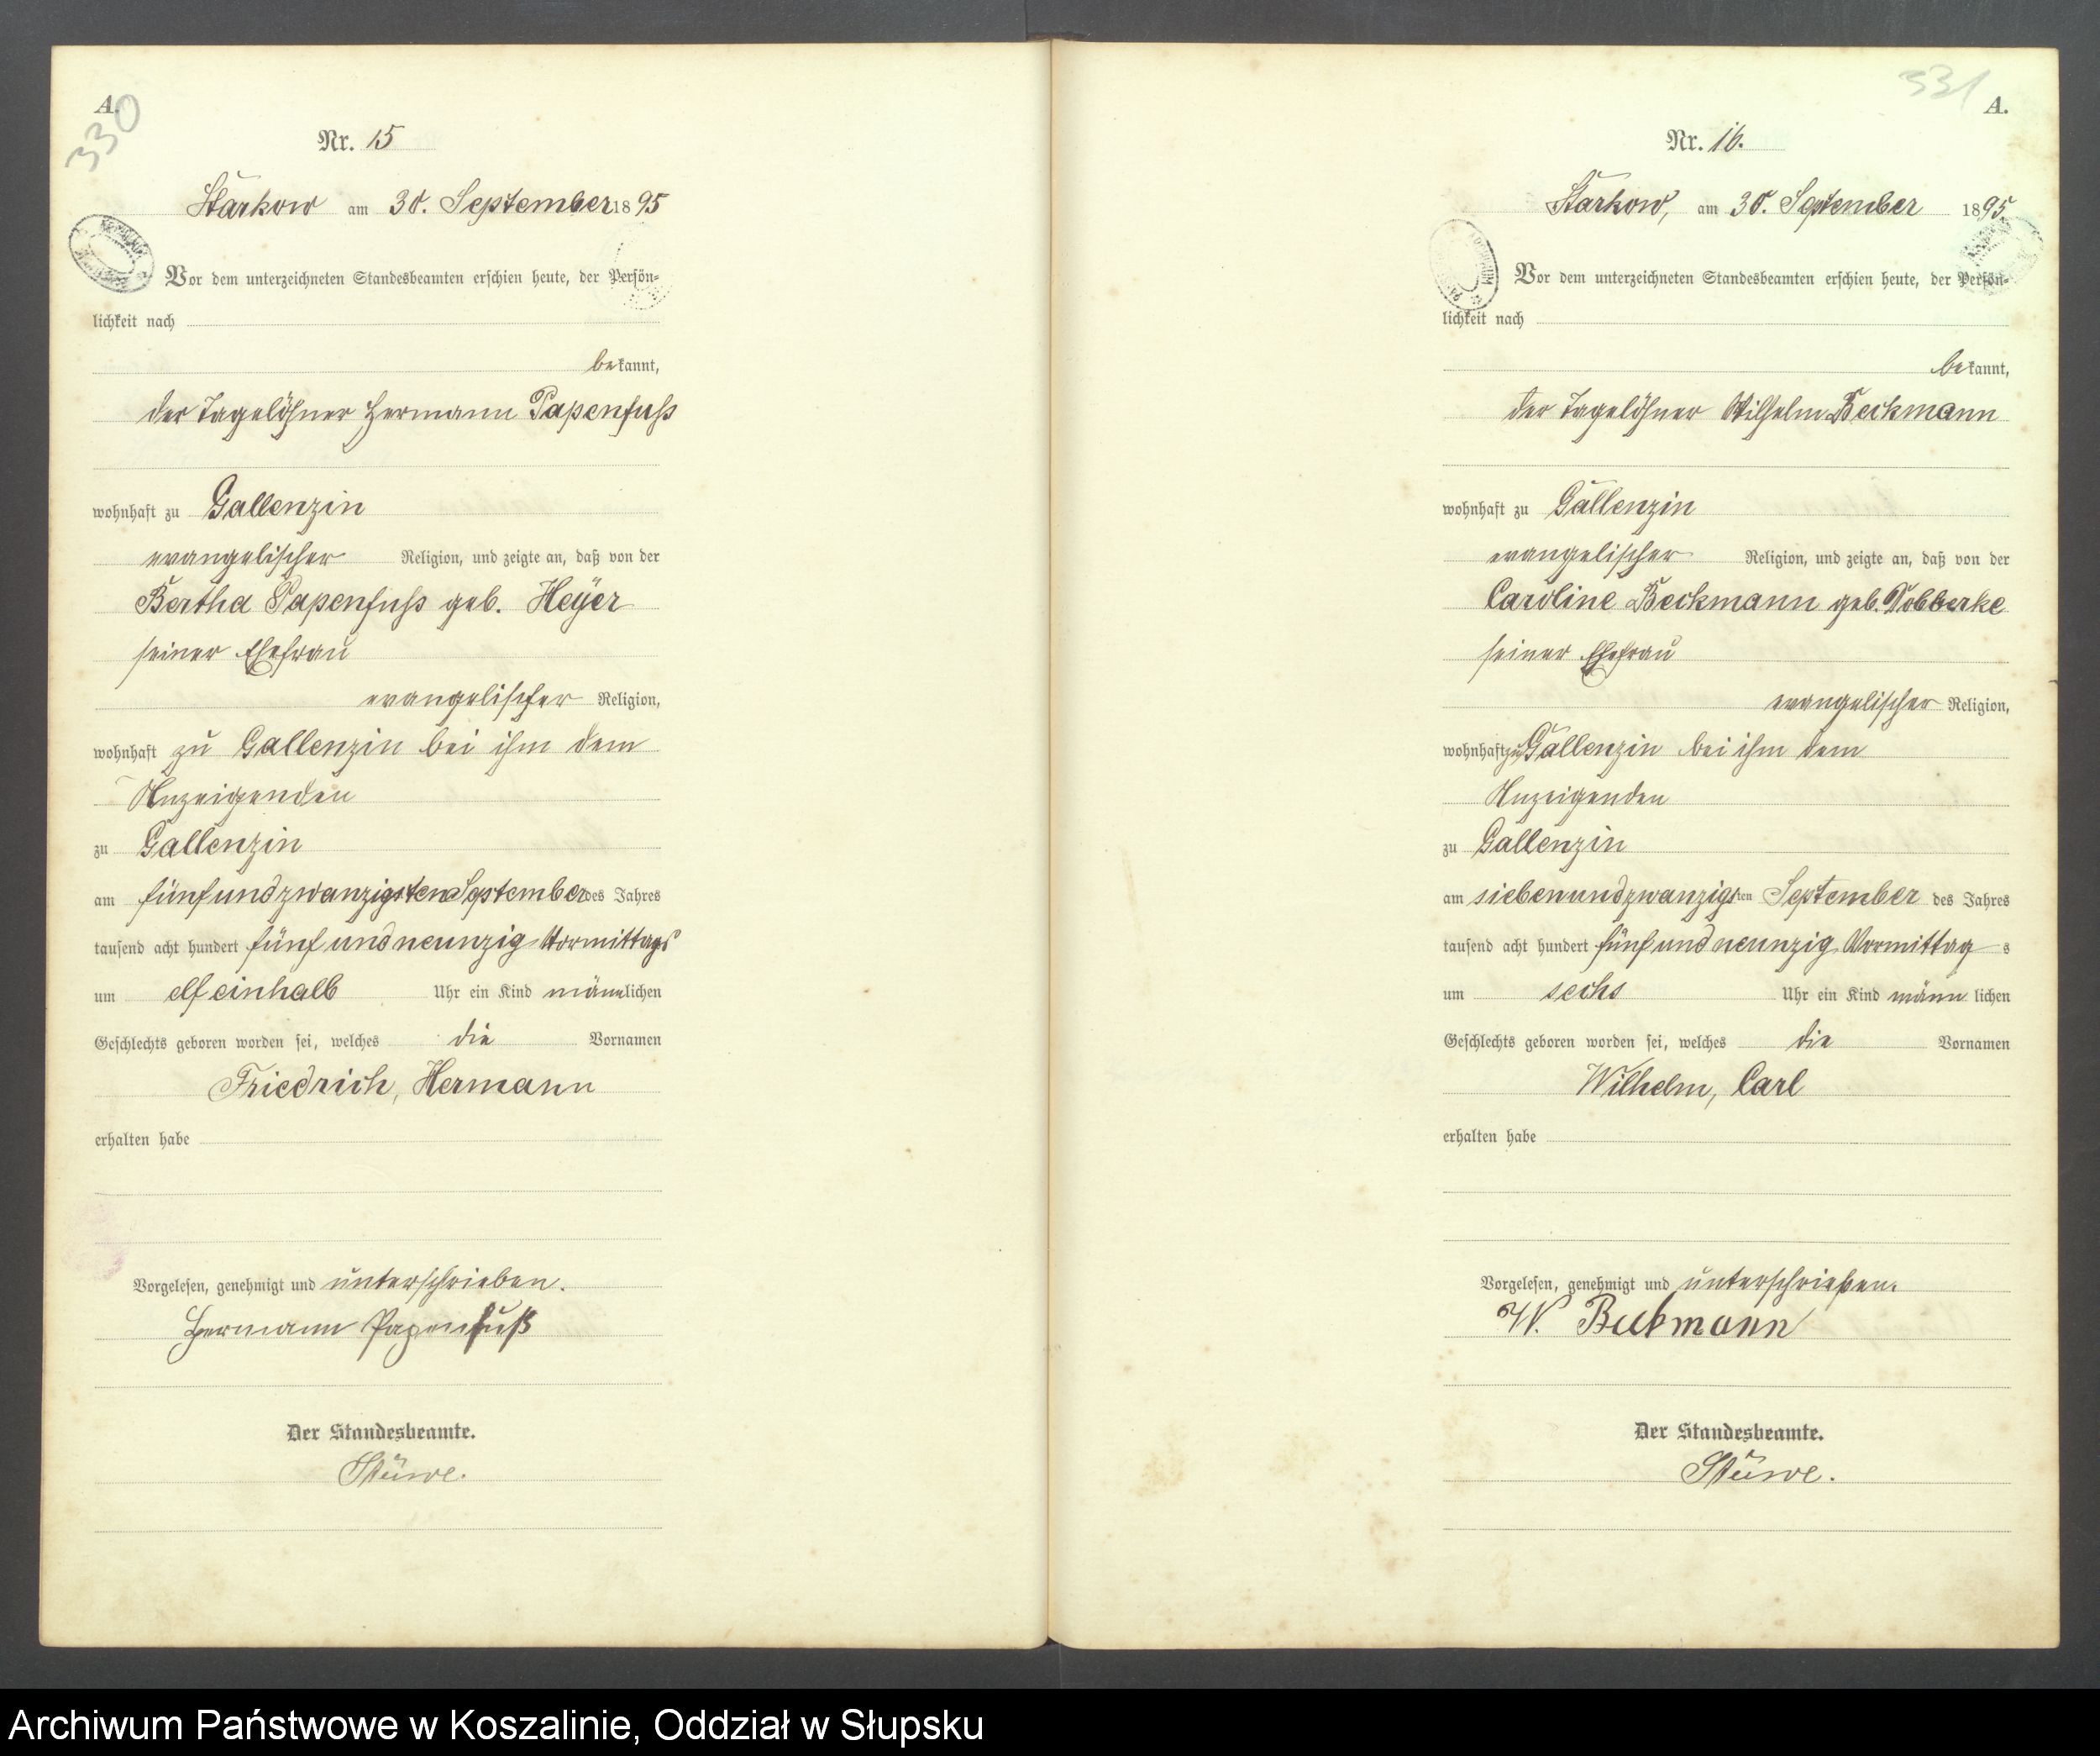 A.
330
Nr. 15
Starkow am 30. September 1895
Vor dem unterzeichneten Standesbeamten erschien heute, der Persön-
lichkeit nach
bekannt,
der Tagelöhner Hermann Papenfuß
wohnhaft zu Gallenzin
evangelischer Religion, und zeigte an, daß von der
Bertha Papenfuß geb. Heyer
seiner Ehefrau
evangelischer Religion,
wohnhaft zu Gallenzin bei ihm dem
Anzeigenden
zu Gallenzin
am fünfundzwanzigsten September des Jahres
tausend acht hundert fünf und neunzig Vormittags
um elf einhalb Uhr ein Kind männlichen
Geschlechts geboren worden sei, welches die Vornamen
Friedrich, Hermann
erhalten habe
Vorgelesen, genehmigt und unterschrieben.
Hermann Papenfuß
Der Standesbeamte.
Stüwe.
331
A.
Nr. 16.
Starkow, am 30. September 1895
Vor dem unterzeichneten Standesbeamten erschien heute, der Persön-
lichkeit nach
bekannt,
der Tagelöhner Wilhelm Beckmann
wohnhaft zu Gallenzin
evangelischer Religion, und zeigte an, daß von der
Caroline Beckmann geb. Dobberke
seiner Ehefrau
evangelischer Religion,
wohnhaft zu Gallenzin bei ihm dem
Anzeigenden
zu Gallenzin
am siebenundzwanzigsten September des Jahres
tausend acht hundert fünf und neunzig Vormittag s
um sechs Uhr ein Kind männ lichen
Geschlechts geboren worden sei, welches die Vornamen
Wilhelm, Carl
erhalten habe
Vorgelesen, genehmigt und unterschrieben.
W. Beckmann
Der Standesbeamte.
Stüwe.
Archiwum Państwowe w Koszalinie, Oddział w Słupsku